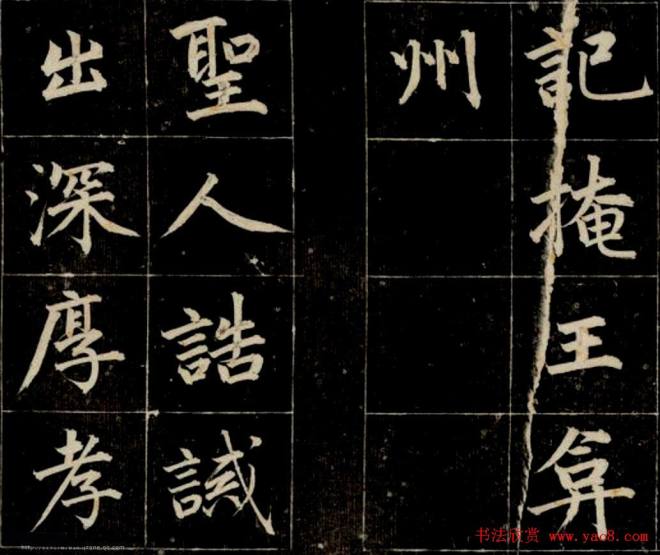 記掩王弇
州
聖人誥誡
出深厚孝
书法欣赏 www.yac8.com